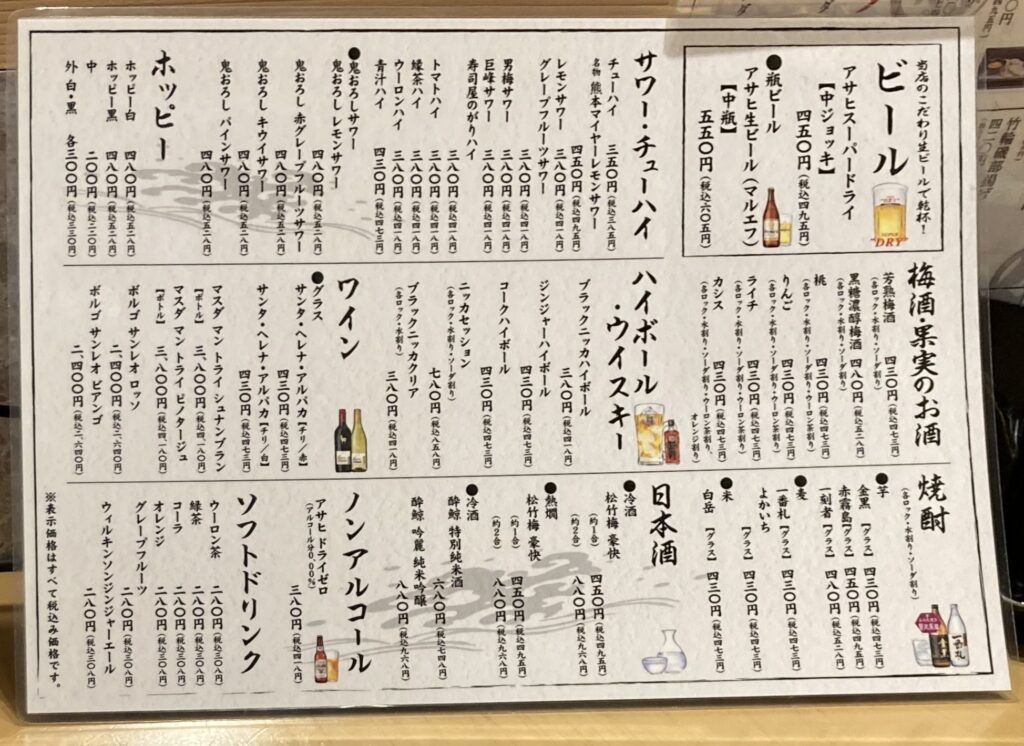 当店のこだわり生ビールで乾杯！
ビール
アサヒスーパードライ
【中ジョッキ】
四五〇円（税込四九五円）
●瓶ビール
アサヒ生ビール（マルエフ）
【中瓶】
五五〇円（税込六〇五円）
サワー・チューハイ
チューハイ 三五〇円（税込三八五円）
名物 熊本マイヤーレモンサワー 四五〇円（税込四九五円）
レモンサワー 三八〇円（税込四一八円）
グレープフルーツサワー 三八〇円（税込四一八円）
男梅サワー 三八〇円（税込四一八円）
巨峰サワー 三八〇円（税込四一八円）
寿司屋のがりハイ 三八〇円（税込四一八円）
トマトハイ 三八〇円（税込四一八円）
緑茶ハイ 三八〇円（税込四一八円）
ウーロンハイ 三八〇円（税込四一八円）
青汁ハイ 四三〇円（税込四七三円）
●鬼おろしサワー
鬼おろし レモンサワー 四八〇円（税込五二八円）
鬼おろし 赤グレープフルーツサワー 四八〇円（税込五二八円）
鬼おろし キウイサワー 四八〇円（税込五二八円）
鬼おろし パインサワー 四八〇円（税込五二八円）
ホッピー
ホッピー白 四八〇円（税込五二八円）
ホッピー黒 四八〇円（税込五二八円）
中 二〇〇円（税込二二〇円）
外 白・黒 各三〇〇円（税込三三〇円）
梅酒・果実のお酒
芳熟梅酒 四三〇円（税込四七三円）
（各ロック・水割り・ソーダ割り）
黒糖濃醇梅酒 四八〇円（税込五二八円）
（各ロック・水割り・ソーダ割り）
桃 四三〇円（税込四七三円）
（各ロック・水割り・ソーダ割り・ウーロン茶割り）
りんご 四三〇円（税込四七三円）
（各ロック・水割り・ソーダ割り・ウーロン茶割り）
ライチ 四三〇円（税込四七三円）
（各ロック・水割り・ソーダ割り・ウーロン茶割り）
カシス 四三〇円（税込四七三円）
（各ロック・水割り・ソーダ割り・ウーロン茶割り、オレンジ割り）
ハイボール・ウイスキー
ブラックニッカハイボール 三八〇円（税込四一八円）
ジンジャーハイボール 四三〇円（税込四七三円）
コークハイボール 四三〇円（税込四七三円）
ニッカセッション 七八〇円（税込八五八円）
（各ロック・水割り・ソーダ割り）
ブラックニッカクリア 三八〇円（税込四一八円）
（各ロック・水割り・ソーダ割り）
ワイン
●グラス
サンタ・ヘレナ・アルパカ【チリ／赤】 四三〇円（税込四七三円）
サンタ・ヘレナ・アルパカ【チリ／白】 四三〇円（税込四七三円）
マスダ マン トライ シュナンブラン
【ボトル】 三、八〇〇円（税込四、一八〇円）
マスダ マン トライ ピノタージュ
【ボトル】 三、八〇〇円（税込四、一八〇円）
ボルゴ サンレオ ロッソ 二、四〇〇円（税込二、六四〇円）
ボルゴ サンレオ ビアンゴ 二、四〇〇円（税込二、六四〇円）
焼酎
（各ロック・水割り・ソーダ割り）
●芋
金黒 【グラス】 四三〇円（税込四七三円）
赤霧島【グラス】 四五〇円（税込四九五円）
一刻者 【グラス】 四八〇円（税込五二八円）
●麦
一番札 【グラス】 四三〇円（税込四七三円）
よかいち 【グラス】 四三〇円（税込四七三円）
●米
白岳 【グラス】 四三〇円（税込四七三円）
日本酒
●冷酒
松竹梅 豪快 （約1合） 四五〇円（税込四九五円）
（約2合） 八八〇円（税込九六八円）
●熱燗
松竹梅 豪快 （約1合） 四五〇円（税込四九五円）
（約2合） 八八〇円（税込九六八円）
●冷酒
酔鯨 特別純米酒 六八〇円（税込七四八円）
酔鯨 吟麗 純米吟醸 八八〇円（税込九六八円）
ノンアルコール
アサヒ ドライゼロ 三八〇円（税込四一八円）
（アルコール分0.00％）
ソフトドリンク
ウーロン茶 二八〇円（税込三〇八円）
緑茶 二八〇円（税込三〇八円）
コーラ 二八〇円（税込三〇八円）
オレンジ 二八〇円（税込三〇八円）
グレープフルーツ 二八〇円（税込三〇八円）
ウィルキンソンジンジャーエール 二八〇円（税込三〇八円）
※表示価格はすべて税込み価格です。